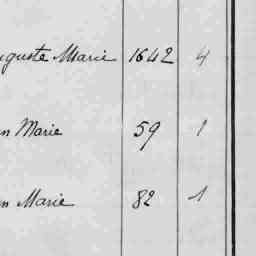 uguste Marie 1642 4
n Marie 59 1
n Marie 82 1